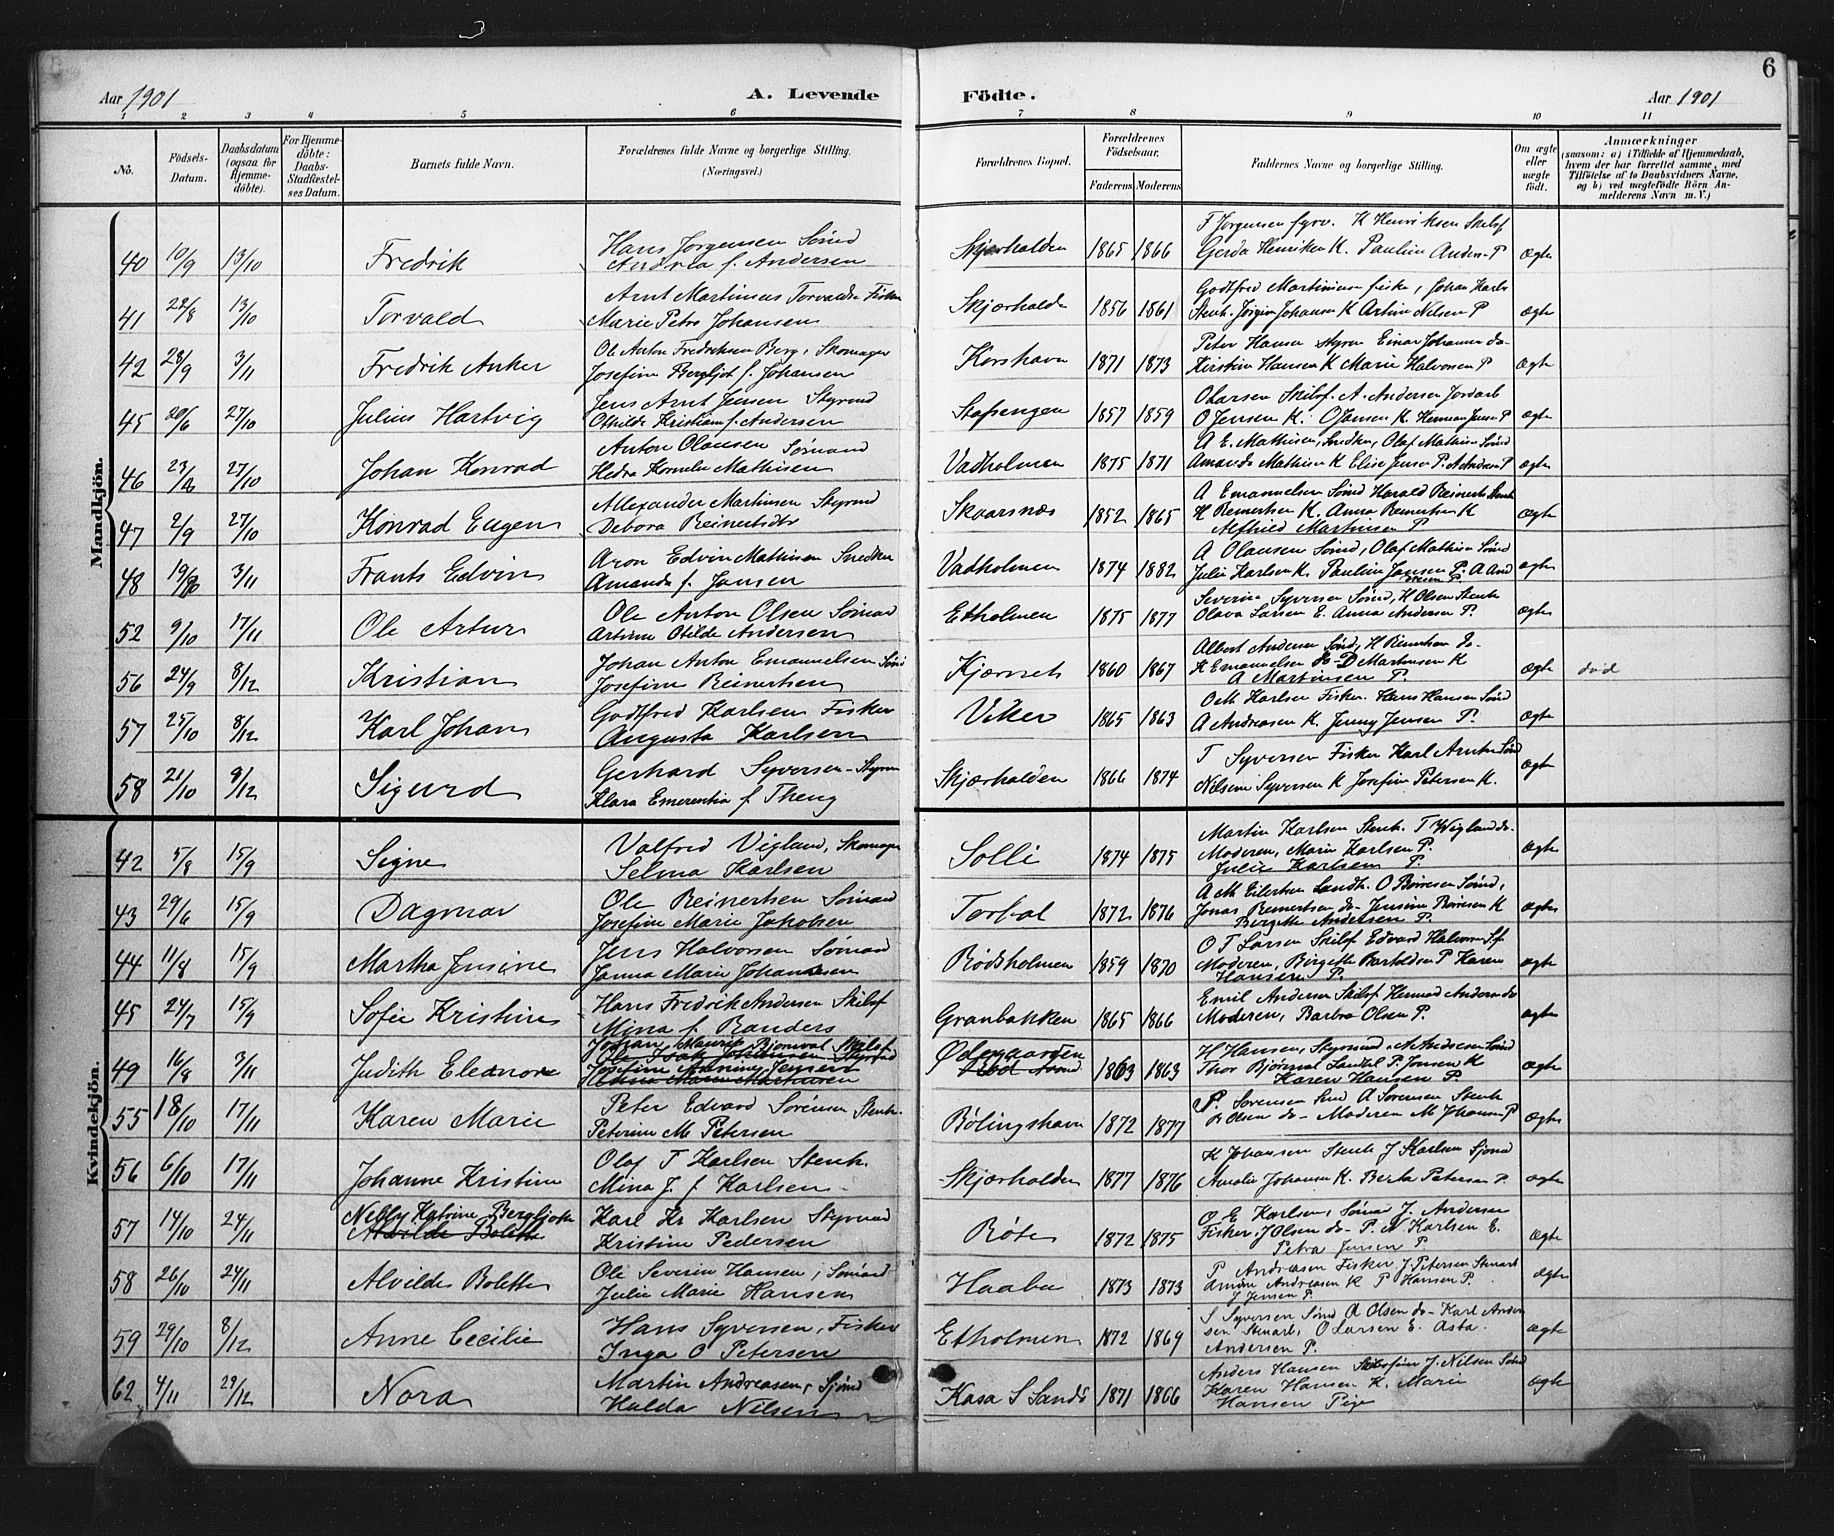 6
Aar 1901 A. Levende Födte. Aar 1901
1 2 3 4 5 6 7 8 9 10 11
No. Födsels-Datum. Daabsdatum (ogsaa for Hjemme-döbte). For Hjemme-döbte: Daabs-Stadfæstel-ses Datum. Barnets fulde Navn. Forældrenes fulde Navne og borgerlige Stilling. (Næringsvei.) Forældrenes Bopæl. Forældrenes Födselsaar. Faderens Moderens Faddernes Navne og borgerlige Stilling. Om ægte eller uægte födt. Anmærkninger (saasom: a) i Tilfælde af Hjemmedaab, hvem der har forrettet samme, med Tilföielse af to Daabsvidners Navne, og b) ved uægtefödte Börn An-melderens Navn m. V.)
Mandkjön.
40 10/9 13/10 Fredrik Hans Jørgensen Sømd Skjærhalden 1865 1866 F Jørgensen fyrv. K Henriksen Skilsf Ægte
Andrea f. Andersen Gerda Henriksen K. Pauline Anders. P
41 22/8 13/10 Torvald Arnt Martinius Torvaldsen Fisker Skjærhalde 1856 1861 Godtfred Martinsen fisker, Johan Karls Ægte
Marie Petra Johansen Stenh. Jørgine Johansen K Artine Nilsen P
42 28/9 3/11 Fredrik Anker Ole Anton Fredriksen Berg, Skomager Korshavn 1871 1873 Peter Hansen Styrm Einar Johannesen do- Ægte
Josefine Bergljot f. Johansen Kirstine Hansen K Marie Halvorsen P
45 20/6 27/10 Julius Hartvig Jens Arnt Jensen Styrmd Stafsengen 1857 1859 O Larsen Skilsf. A. Andersen Jordarb Ægte
Othilde Kristian f. Andersen O Jensen K. O Jansen K. Herman Jensen P
46 27/10 Johan Konrad Anton Olausen Sømand Vadholmen 1875 1871 A E. Mathisen, Snedker, Olaf Mathisen Sømd Ægte
Hedva Kornelie Mathisen Amanda Mathisen K Elise Jensen P. A Andersen P
47 2/9 27/10 Konrad Eugen Alexander Martinsen Styrmd Skaarsnæs 1852 1865 A Emanuelsen Sømd Harald Reinerts Stenh Ægte
Debora Reinertsdtr H Reinertsen K. Anna Reinertsen K
Alfhild Martinsen P
48 3/11 Frants Edvin Aron Edvin Mathisen Snedker Vadholmen 1874 1882 A Olausen Sømd, Olaf Mathisen Sømd Ægte
Amanda f. Jansen Julie Karlsen K. Pauline Jansen P. A And
resen P.
52 9/10 17/11 Ole Artur Ole Anton Olsen Sømand Etholmen 1875 1877 Severin Syversen Sømd, H Olsen Stenh Ægte
Artine Otilde Andersen Olava Larsen E. Anna Andersen P.
56 24/9 8/12 Kristian Johan Anton Emanuelsen Sømd Kjærnet 1860 1867 Albert Andersen Sømd, H Reinertsen do- Ægte død
Josefine Reinertsen K Emanuelsen K- D Martinsen K
A Martinsen P.
57 25/10 8/12 Karl Johan Godtfred Karlsen Fisker Viker 1865 1863 O M Karlsen Fisker. Hans Hansen Sømd Ægte
Augusta Karlsen A Andreasen K. Jenny Jensen P.
58 21/10 9/12 Sigurd Gerhard Syversen - Styrm Skjærhalden 1866 1874 T Syversen Fisker Karl Arntsen Sømd Ægte
Klara Emerentia f. Theng Nilsine Syversen K Josefine Petersen K.
Kvindekjön.
42 5/8 15/9 Signe Valfred Vigland, Skomager Solli 1874 1875 Martin Karlsen Stenh. T Wigland do- Ægte
Selma Karlsen Moderen, Marie Karlsen P.
Julie Karlsen P.
43 29/6 15/9 Dagmar Ole Reinertsen Sømand Torbal 1872 1876 A M Eilertsen Landh. O Børresen Sømd, Ægte
Josefine Marie Jakobsen Jonas Reinertsen do- Jensine Børresen K
Bergitte Andersen P.
44 11/8 15/9 Martha Jensine Jens Halvorsen Sømand Rødsholmen 1859 1870 O T Larsen Skilsf Edvard Halvorsen Sf. Ægte
Janna Marie Johannesen Moderen, Birgitte Bartoldsen P Karen
Hansen P.
45 24/7 15/9 Sofie Kristine Hans Fredrik Andersen Skilsf Granbakken 1865 1866 Emil Andersen Skilsf. Herman Andersen do ægte
Mina f Randers Moderen, Barbra Olsen P.
49 16/8 3/11 Judith Eleanore Johan Maurits Bjørnval Skilsf Ødegaarden 1863 1863 H Hansen, Styrmand. A Andresen Sømd Ægte
Josefine Antonie Jensen Thor Bjørnval Landhl P. Jonsen K
Karen Hansen P.
55 18/10 17/11 Karen Marie Peter Edvard Sørensen Stenh. Bølingshavn 1872 1877 P. Sørensen Smd A Sørensen Stenh Ægte
Peterine M Petersen O Olsen do- Moderen M Johansen P
56 6/10 17/11 Johanne Kristine Olaf T Karlsen Stenh. Skjærhalden 1877 1876 K Johansen Stenh J Karlsen Sjømd ægte
Mina J. f Karlsen Amalie Johansen K. Berta Petersen P.
57 14/10 24/11 Nelly Katrine Bergljot Karl Kr Karlsen Styrmand Røte 1872 1875 O E Karlsen, Sømd J. Andersen Ægte
Alvilde Bolette Kristine Pedersen Fisker. J Olsen do- P. N Karlsen E.
Petra Jensen P.
58 26/10 24/11 Alvilde Bolette Ole Severin Hansen, Sømand Haabu 1873 1873 P Andreasen Fisker J. Petersen Stenarb Ægte
Julie Marie Hansen Andreasen K P Hansen P.
J Jensen P.
59 29/10 8/12 Anne Cecilie Hans Syversen, Fisker Etholmen 1872 1869 S Syversen Sømd A Olsen do- Karl Ander Ægte
Inga O Petersen sen Stenarb, O Larsen E. Asta
Andersen P.
62 4/11 29/12 Nora Martin Andreasen, Sjømd Kasa S Sandø 1871 1866 Anders Hansen J. Nilsen Sømd Ægte
Hulda Nilsen Karen Hansen K. Marie
Hansen Pige